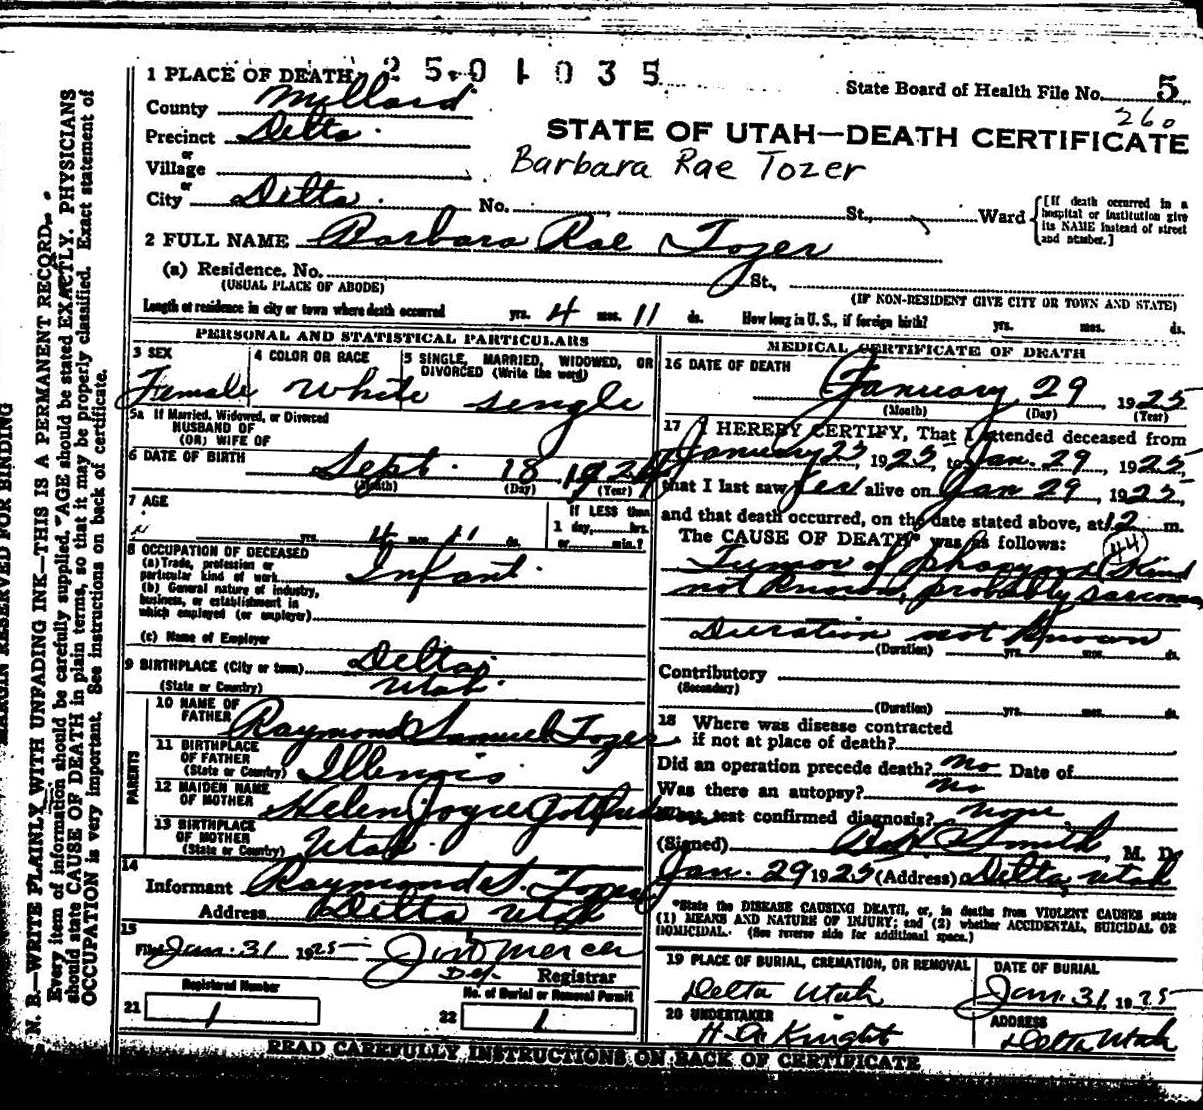 1 PLACE OF DEATH 2 5 0 1 0 3 5
State Board of Health File No. 5
260
County Millard
Precinct Delta
or
Village
or
City Delta No. St., Ward
[If death occurred in a hospital or institution give its NAME instead of street and number.]
STATE OF UTAH—DEATH CERTIFICATE
Barbara Rae Tozer
2 FULL NAME Barbara Rae Tozer
(a) Residence. No. St.,
(USUAL PLACE OF ABODE) (IF NON-RESIDENT GIVE CITY OR TOWN AND STATE)
Length of residence in city or town where death occurred yrs. 4 mos. 11 ds. How long in U. S., if foreign birth? yrs. mos. ds.
PERSONAL AND STATISTICAL PARTICULARS
3 SEX
Female
4 COLOR OR RACE
White
5 SINGLE, MARRIED, WIDOWED, OR DIVORCED (Write the word)
Single
5a If Married, Widowed, or Divorced
HUSBAND OF
(OR) WIFE OF
6 DATE OF BIRTH Sept. 18 1924
(Month) (Day) (Year)
7 AGE
yrs. 4 mos. 11 ds.
If LESS than
1 day, hrs.
or min.?
8 OCCUPATION OF DECEASED
(a) Trade, profession or
particular kind of work Infant
(b) General nature of industry,
business, or establishment in
which employed (or employer)
(c) Name of Employer
9 BIRTHPLACE (City or town) Delta
(State or Country) Utah
PARENTS
10 NAME OF FATHER Raymond Samuel Tozer
11 BIRTHPLACE OF FATHER
(State or Country) Illinois
12 MAIDEN NAME OF MOTHER Helen Joyce
13 BIRTHPLACE OF MOTHER
(State or Country) Utah
14
Informant Raymond S. Tozer
Address Delta Utah
15
Filed Jan. 31 1925 Mercer
Dep. Registrar
Registered Number
21 1
No. of Burial or Removal Permit
22 1
MEDICAL CERTIFICATE OF DEATH
16 DATE OF DEATH
January 29 1925
(Month) (Day) (Year)
17 I HEREBY CERTIFY, That I attended deceased from
January 23, 1925, to Jan. 29, 1925,
that I last saw her alive on Jan 29, 1925,
and that death occurred, on the date stated above, at 12 m.
The CAUSE OF DEATH* was as follows:
44
Tumor of pharynx (Kind
not Known, probably sarcoma
Duration not Known
(Duration) yrs. mos. ds.
Contributory
(Secondary)
(Duration) yrs. mos. ds.
18 Where was disease contracted
if not at place of death?
Did an operation precede death? no Date of
Was there an autopsy? no
What test confirmed diagnosis? none
(Signed) Smith, M. D.
Jan. 29 1925 (Address) Delta, Utah
*State the DISEASE CAUSING DEATH, or, in deaths from VIOLENT CAUSES state
(1) MEANS AND NATURE OF INJURY; and (2) whether ACCIDENTAL, SUICIDAL OR
HOMICIDAL. (See reverse side for additional space.)
19 PLACE OF BURIAL, CREMATION, OR REMOVAL
Delta Utah
DATE OF BURIAL
Jan. 31 1925
20 UNDERTAKER
H. A. Knight
ADDRESS
Delta Utah
READ CAREFULLY INSTRUCTIONS ON BACK OF CERTIFICATE
MARGIN RESERVED FOR BINDING
N. B.—WRITE PLAINLY, WITH UNFADING INK—THIS IS A PERMANENT RECORD.
Every item of information should be carefully supplied. AGE should be stated EXACTLY. PHYSICIANS
should state CAUSE OF DEATH in plain terms, so that it may be properly classified. Exact statement of
OCCUPATION is very important. See instructions on back of certificate.